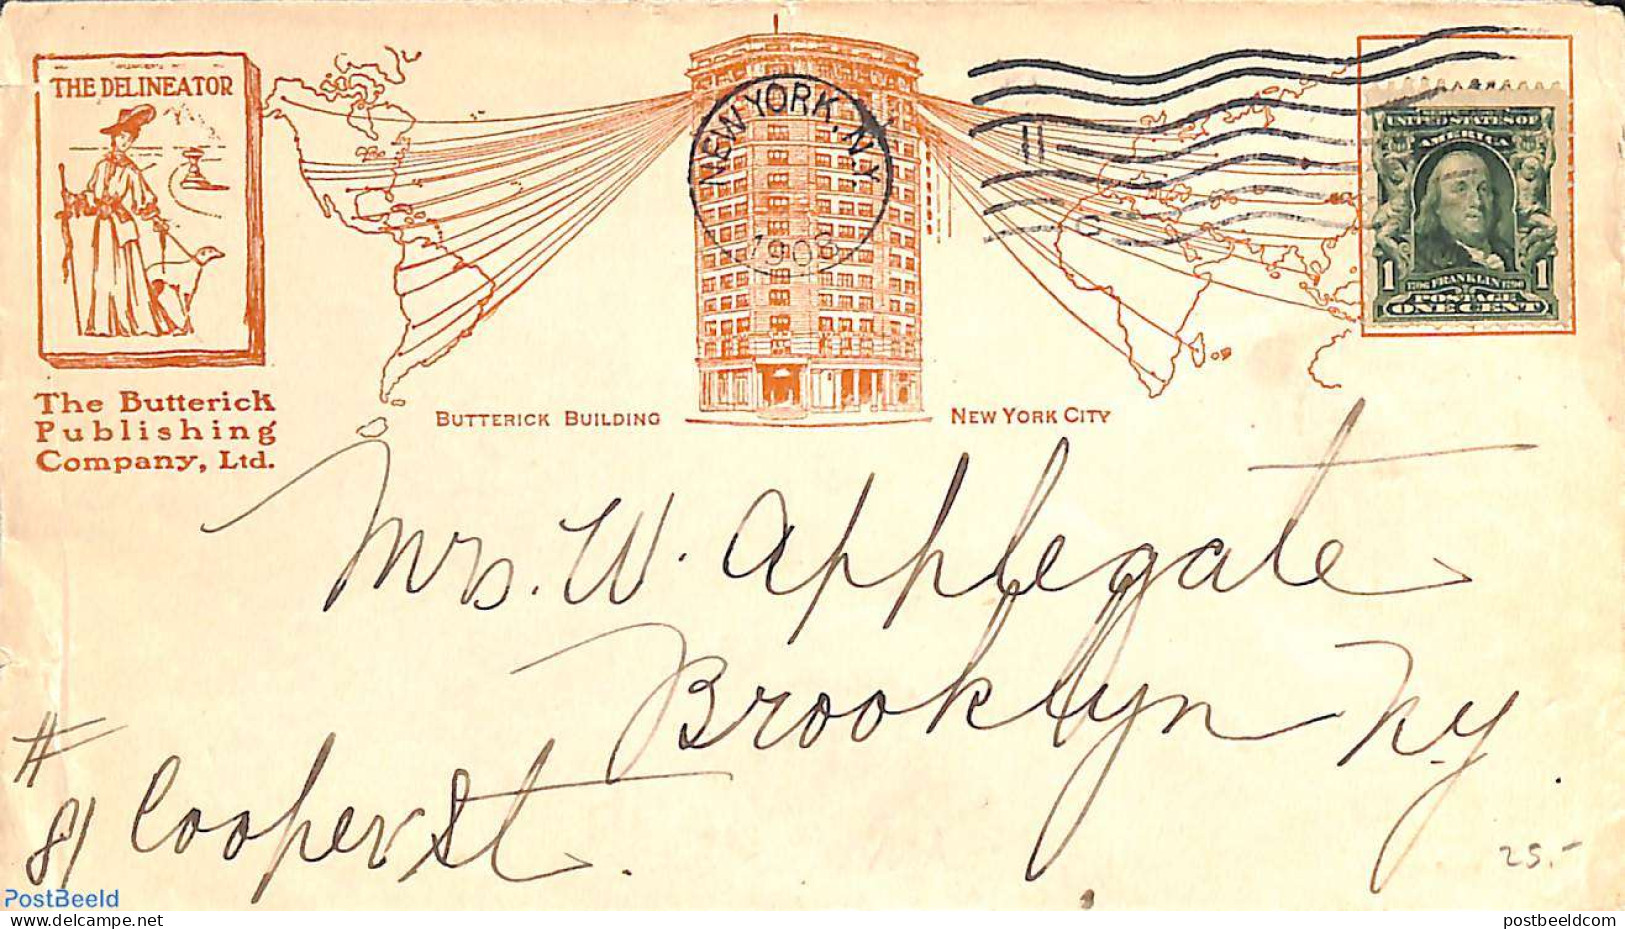 THE DELINEATOR
The Butterick
Publishing
Company, Ltd.
BUTTERICK BUILDING
NEW YORK CITY
NEW YORK, N.Y.
11
C
UNITED STATES OF
AMERICA
1
1706 FRANKLIN 1790
1
POSTAGE
ONE CENT
Mrs. W. Applegate
Brooklyn N.y.
# 81 Cooper St.
25.-
PostBeeld
www.postbeeld.com
postbeeldcom